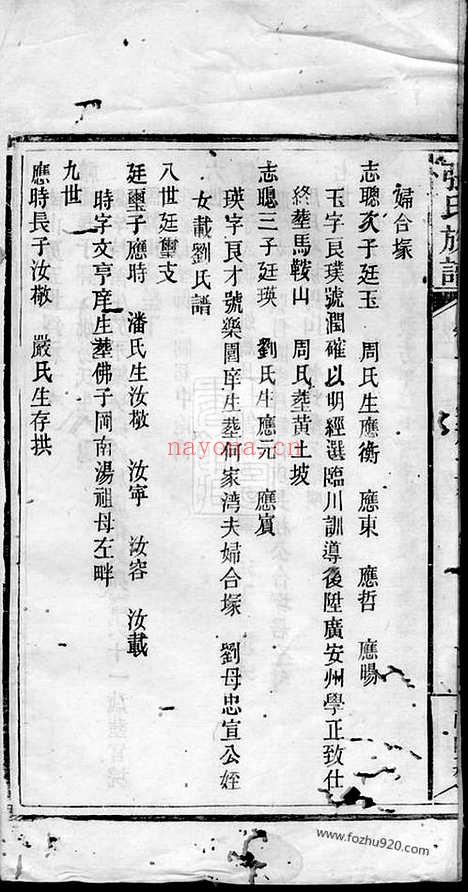 張氏族譜
婦合塚
志聰次子廷玉　周氏生應衡　應東　應哲　應暘
玉字良璞號潤確以明經選臨川訓導後陞廣安州學正致仕
終塟馬鞍山　周氏塟黃土坡
志聰三子廷瑛　劉氏生應元　應賔
瑛字良才號樂圃庠生塟何家湾夫婦合塚　劉母忠宣公姪
女載劉氏譜
八世廷璽支
廷璽子應時　潘氏生汝敬　汝寧　汝容　汝載
時字文亨庠生塟佛子岡南湯祖母左畔
九世
應時長子汝敬　嚴氏生存拱
nayona.cn
www.fozhu920.com